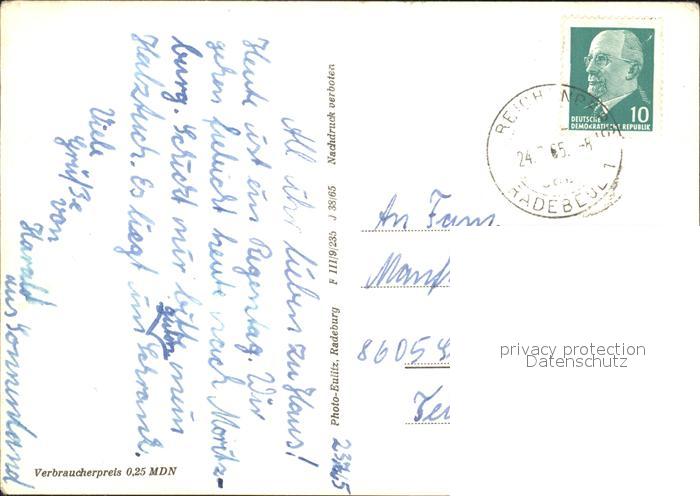 All ihr lieben zu Haus!
Heute ist ein Regentag. Wir
gehen heute nach Moritz-
burg. Schickt mir bitte mein
gutes
Halztuch. Es liegt im Schrank.
Viele
Grüße
von
Harald
aus Sonnenland
Verbraucherpreis 0,25 MDN
Photo-Eulitz, Radeburg F III/9/235 J 38/65 Nachdruck verboten
DEUTSCHE
DEMOKRATISCHE REPUBLIK
10
24.7.65.-8
RADEBEUL 1
An Fam.
Manf
8605
privacy protection
Datenschutz